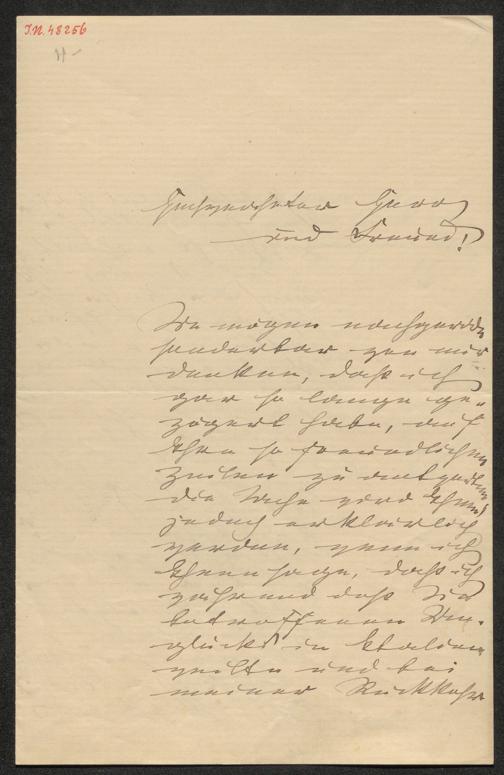 I.N. 48256
Hochverehrter Herr
und Freund!
Sie mögen nachgerade
sonderbar von mir
denken, daß ich
gar so lange ge-
zögert habe, auf
Ihre so freundlichen
Zeilen zu antworten,
die Sache wird Ihnen
jedoch erklärlich
werden, wenn ich
Ihnen sage, daß ich
während des Sie
betroffenen Un-
glücks in Italien
weilte und bei
meiner Rückkehr